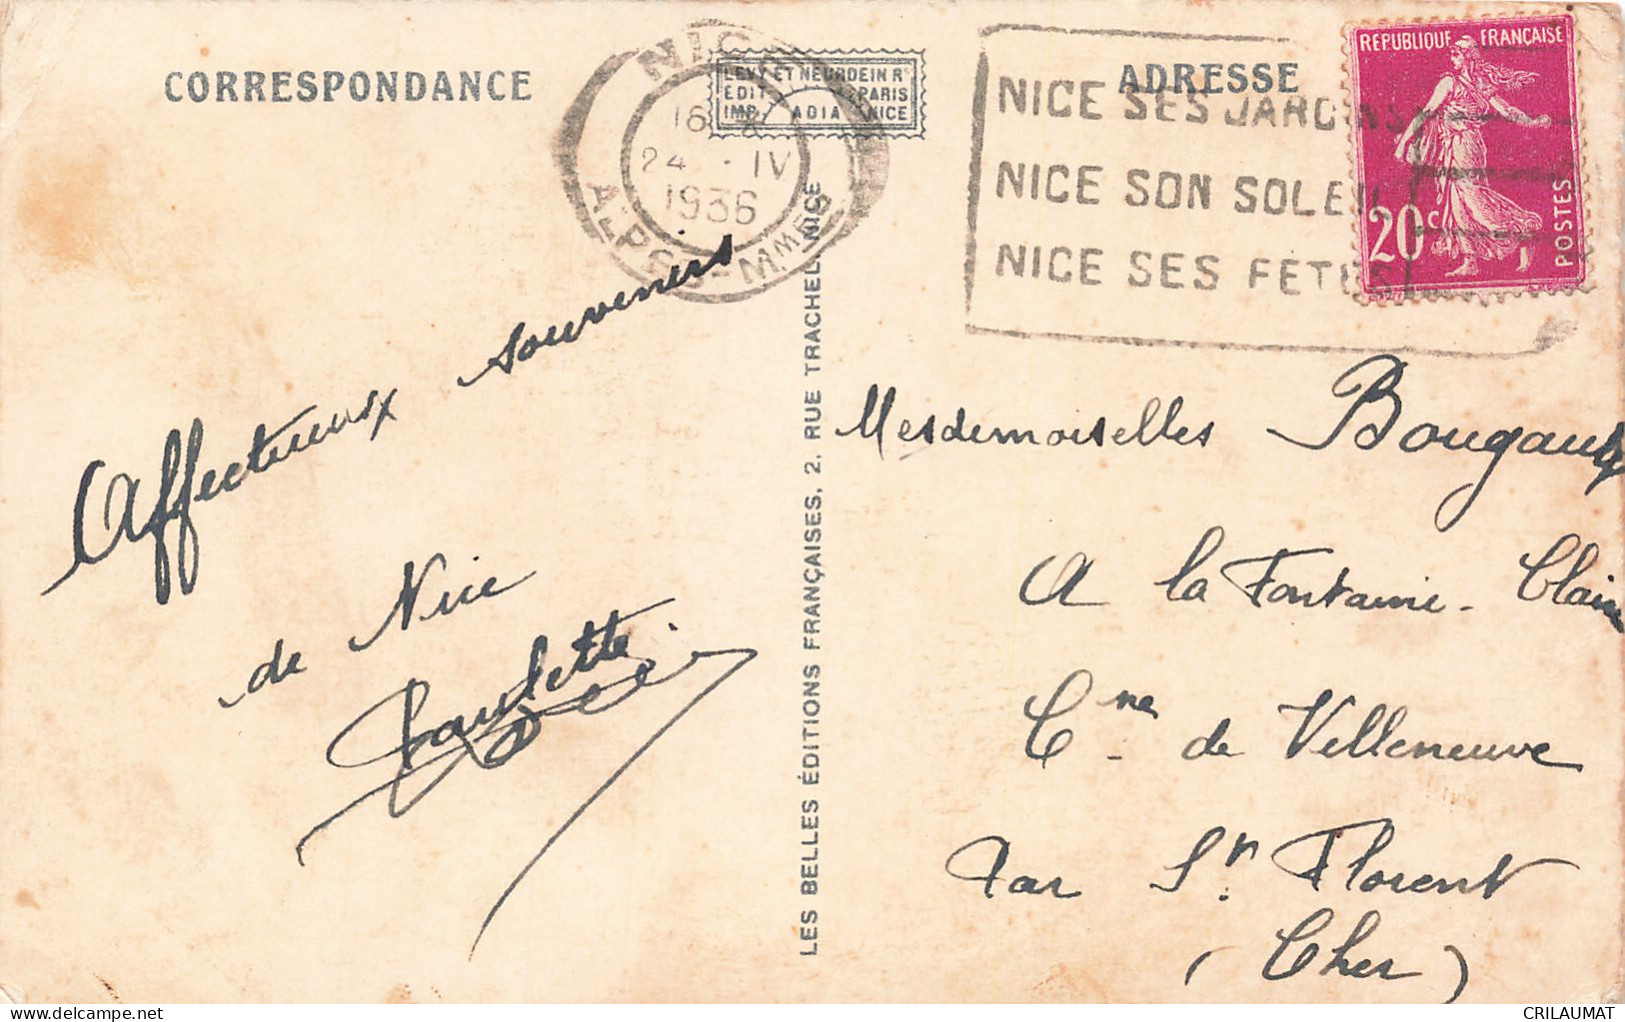 CORRESPONDANCE
NICE
24 - IV
1936
ALPES-MMES
LEVY ET NEURDEIN RS
EDIT PARIS
IMP. ADIA NICE
ADRESSE
NICE SES JARDINS
NICE SON SOLEIL
NICE SES FETES
REPUBLIQUE FRANÇAISE
20c
POSTES
Affectueux souvenirs
de Nice
LES BELLES ÉDITIONS FRANÇAISES, 2. RUE TRACHEL, NICE
Mesdemoiselles Bougault
A la Fontaine-Claire
Cne de Villeneuve
Par St. Florent
(Cher)
CRILAUMAT